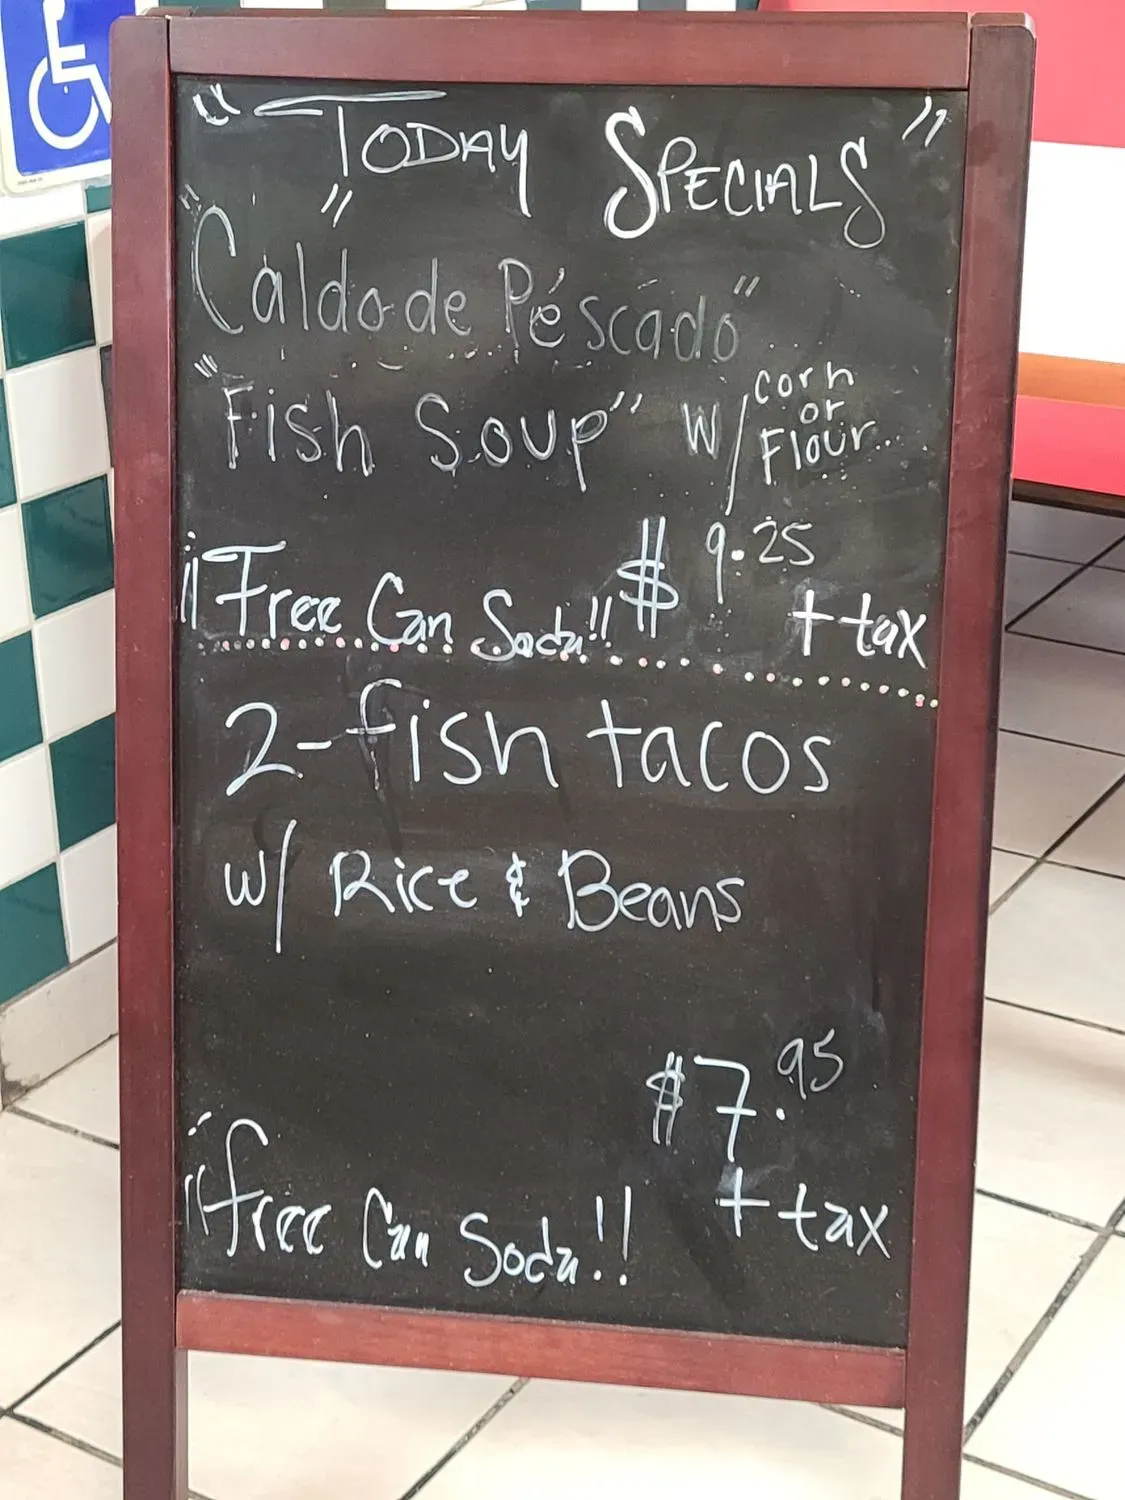 " TODAY SPECIALS "
"Caldo de Péscado"
"Fish Soup" w/ corn or Flour
$9.25
¡¡Free Can Soda!! + tax
2-fish tacos
w/ Rice & Beans
$7.95
¡¡free Can Soda!! + tax